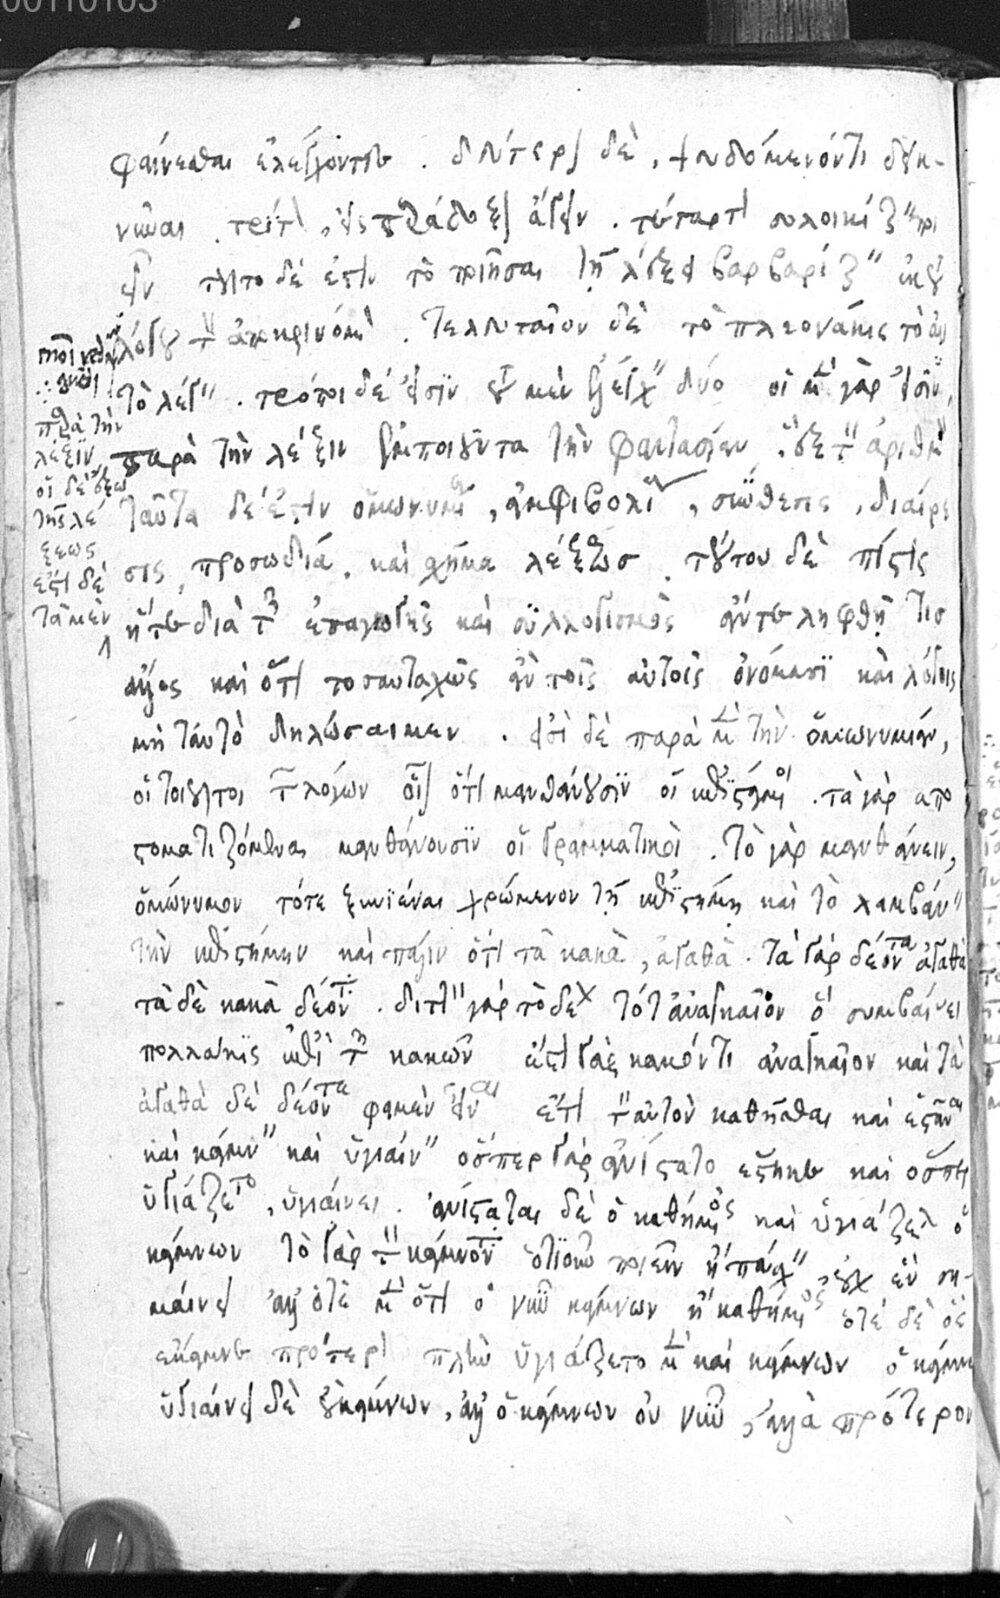 00110103
φαίνεσθαι ἐλέγχοντες . δεύτερον δὲ , ψευδόμενόν τι δεικ-
νύναι . τρίτον , εἰς παράδοξον ἄγειν . τέταρτον σολοικίζειν ποι
εῖν τοῦτο δέ ἐστιν τὸ ποιῆσαι τῇ λέξει βαρβαρίζειν ἐκ τοῦ
λόγου τὸν ἀποκρινόμενον . τελευταῖον δὲ τὸ πλεονάκις τὸ αὐ
τὸ λέγειν . τρόποι δέ εἰσὶν τοῦ μὲν ἐλέγχειν δύο οἱ μὲν γάρ εἰσὶν ,
παρὰ τὴν λέξιν
οἱ δὲ ἔξω
τῆς λέ
ξεως
ἔστι δὲ
τὰ μὲν
παρὰ τὴν λέξιν ἐμποιοῦντα τὴν φαντασίαν . ἓξ τὸν ἀριθμόν
ταῦτα δέ ἐστιν ὁμωνυμία , ἀμφιβολία , σύνθεσις , διαίρε
σις , προσωδία , καὶ σχῆμα λέξεως . τούτου δὲ πίστις
ἥτε διὰ τῆς ἐπαγωγῆς καὶ συλλογισμὸς ἄν τε ληφθῇ τισ
ἄλλος καὶ ὅτι τοσαυταχῶς ἂν τοῖς αὐτοῖς ὀνόμασι καὶ λόγοις
μὴ ταὐτὸ δηλώσαιμεν . εἰσὶ δὲ παρὰ μὲν τὴν ὁμωνυμίαν ,
οἱ τοιοῦτοι τῶν λόγων οἷον ὅτι μανθάνουσιν οἱ ἐπιστάμενοι . τὰ γὰρ απο
στοματιζόμενα μανθάνουσιν οἱ γραμματικοὶ . τὸ γὰρ μανθάνειν ,
ὁμώνυμον τότε ξυνιέναι χρώμενον τῇ ἐπιστήμῃ καὶ τὸ λαμβάνειν
τὴν ἐπιστήμην καὶ πάλιν ὅτι τὰ κακὰ , ἀγαθὰ . τὰ γὰρ δέοντα ἀγαθὰ
τὰ δὲ κακὰ δέοντα . διττὸν γὰρ τὸ δέον τό τ᾽ ἀναγκαῖον ὃ συμβαίνει
πολλάκις ἐπὶ τῶν κακῶν ἔστι γὰρ κακόν τι ἀναγκαῖον καὶ τὰ
ἀγαθὰ δὲ δέοντα φαμὲν εἶναι ἔτι τὸν αὐτὸν καθῆσθαι καὶ ἑστάναι
καὶ κάμνειν καὶ ὑγιαίνειν ὅσπερ γὰρ ἀνίστατο ἕστηκε καὶ ὅσπερ
ὑγιάζετο , ὑγιαίνει . ἀνίσταται δὲ ὁ καθήμενος καὶ ὑγιάζεται ὁ
κάμνων τὸ γὰρ τὸν κάμνοντα ὁτιοῦν ποιεῖν ἢ πάσχειν οὐχ ἓν ση-
μαίνει ἀλλ᾽ ὁτὲ μὲν ὅτι ὁ νῦν κάμνων ἢ καθήμενος ὁτὲ δὲ ὃς
ἔκαμνε πρότερον πλὴν ὑγιάζετο μὲν καὶ κάμνων ὁ κάμνων
ὑγιαίνει δὲ οὐ κάμνων , ἀλλ᾽ ὁ κάμνων οὐ νῦν , ἀλλὰ πρότερον